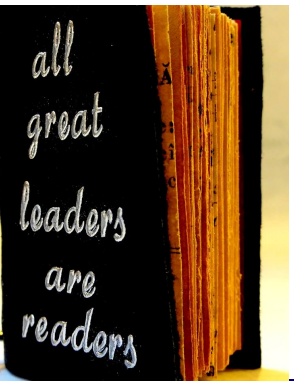 all
great
leaders
are
readers